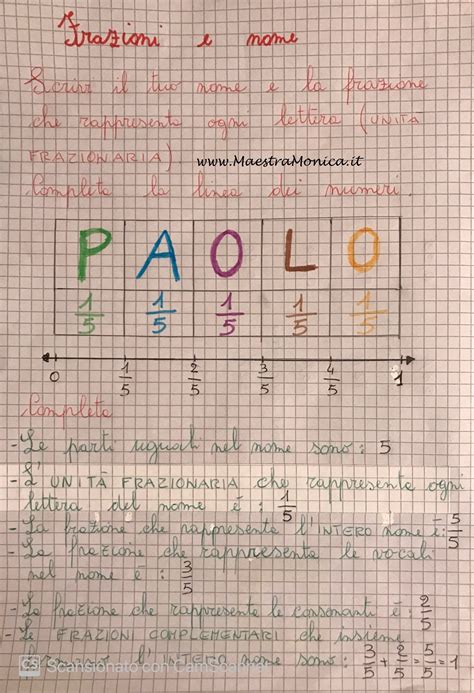 Frazioni e nome
Scrivi il tuo nome e la frazione
che rappresenta ogni lettera (UNITÀ
FRAZIONARIA).
www.MaestraMonica.it
Completa la linea dei numeri.
P A O L O
1/5 1/5 1/5 1/5 1/5
0 1/5 2/5 3/5 4/5 1
Completa
- Le parti uguali nel nome sono: 5
- L'UNITÀ FRAZIONARIA che rappresenta ogni
lettera del nome è: 1/5
- La frazione che rappresenta l'INTERO nome è: 5/5
- La frazione che rappresenta le vocali
nel nome è: 3/5
- La frazione che rappresenta le consonanti è: 2/5
- Le FRAZIONI COMPLEMENTARI che insieme
formano l'INTERO nome sono: 3/5 + 2/5 = 5/5 = 1
CS Scansionato con CamScanner